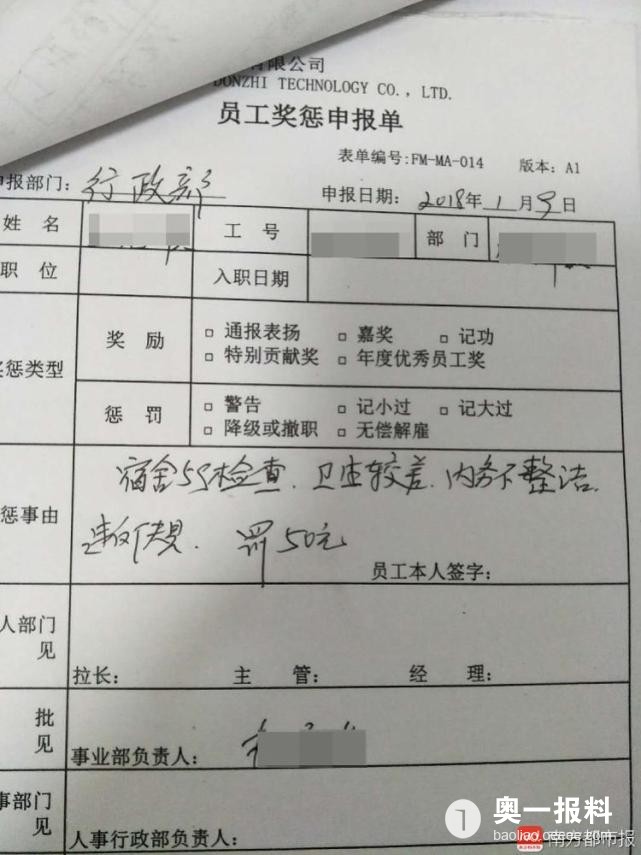 有限公司
DONZHI TECHNOLOGY CO., LTD.
员工奖惩申报单
表单编号:FM-MA-014 版本:A1
申报部门: 行政部 申报日期: 2018年1月9日
姓名 工号 部门
职位 入职日期
奖惩类型 奖励 □ 通报表扬 □ 嘉奖 □ 记功
□ 特别贡献奖 □ 年度优秀员工奖
惩罚 □ 警告 □ 记小过 □ 记大过
□ 降级或撤职 □ 无偿解雇
惩事由 宿舍5S检查、卫生较差、内务不整洁
罚50元
员工本人签字:
人部门
见 拉长: 主管: 经理:
批
见 事业部负责人:
事部门
见 人事行政部负责人:
奥一报料
南方都市报